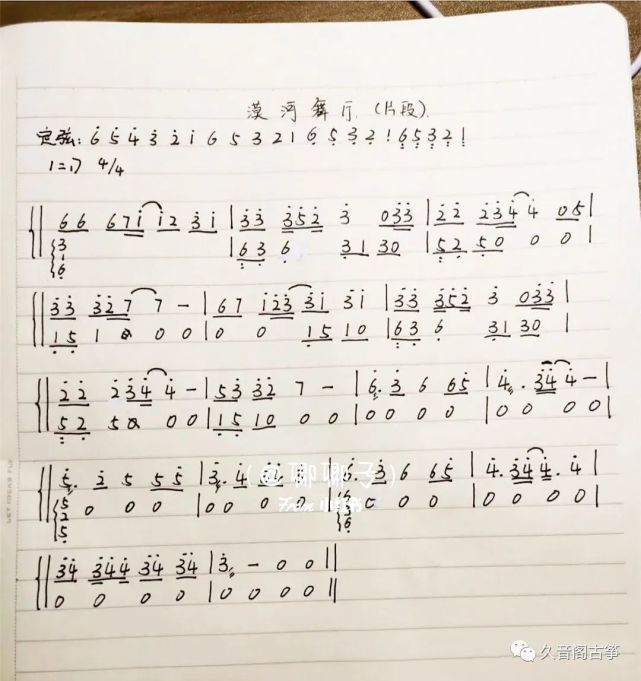 漠河舞厅.(片段).
定弦: 6̇ 5̇ 4̇ 3̇ 2̇ 1̇ 6 5 3 2 1 6̣ 5̣ 3̣ 2̣ 1̣ 6̣ 5̣ 3̣ 2̣ 1̣
1=D 4/4
6 6 6 7 1̇ 1̇ 2 3̇ 1̇ | 3̇ 3̇ 3̇ 5̇ 2̇ 3̇ 0 3̇ 3̇ | 2̇ 2̇ 2̇ 3̇ 4̇ 4̇ 0 5̇ |
3 1 6̣ | 6̣ 3̣ 6̣ 3 1 3 0 | 5̣ 2̣ 5̣ 0 0 0 |
3̇ 3̇ 3̇ 2̇ 7 7 - | 6 7 1̇ 2̇ 3̇ 3̇ 1̇ 3̇ 1̇ | 3̇ 3̇ 3̇ 5̇ 2̇ 3̇ 0 3̇ 3̇ |
1̣ 5̣ 1 0 0 | 0 0 1̣ 5̣ 1 0 | 6̣ 3̣ 6̣ 3 1 3 0 |
2̇ 2̇ 2̇ 3̇ 4̇ 4̇ - | 5 3̇ 3̇ 2̇ 7 - | 6̇. 3̇ 6 6 5̇ | 4̇. 3̇ 4̇ 4̇ - |
5̣ 2̣ 5 0 0 | 1̣ 5̣ 1 0 0 0 | 0 0 0 0 | 0 0 0 0 |
5̇. 2̇ 5 5 5̇ | 3̇. 4̇ | 6̇. 3̇ 6 6 5̇ | 4̇. 3̇ 4̇ 4̇. 4̇ |
5 2 5̣ 0 0 0 | 0 0 0 0 | 6 3 6̣ 0 0 0 | 0 0 0 0 |
(@聊聊子)
From
3̇ 4̇ 3̇ 4̇ 4̇ 3̇ 4̇ 3̇ 4̇ | 3̇ - 0 0 ||
0 0 0 0 | 0 0 0 0 ||
久音阁古筝